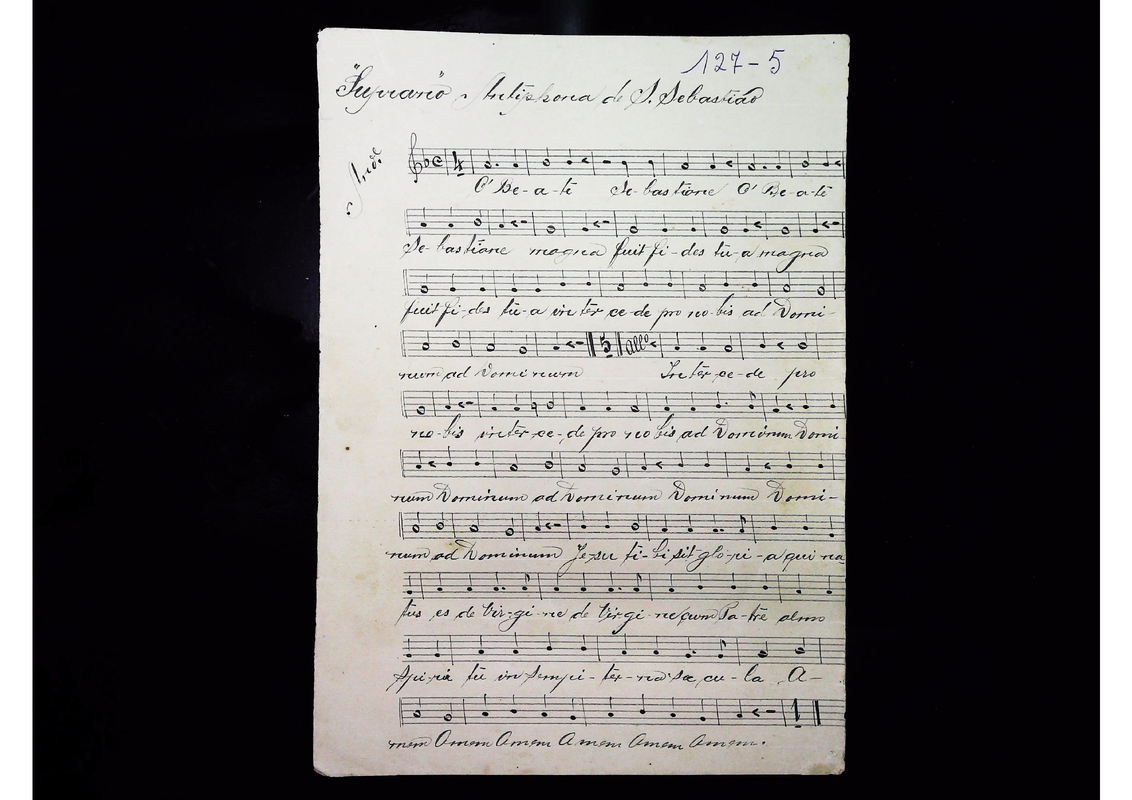 127-5
"Suprano" Antiphona de S. Sebastião
And.e
4
O' Be-a-te Se-bastiane O' Be-a-te
Se-bastiane magna fuit fi-des tu-a magna
fuit fi-des tu-a in ter ce-de pro no-bis ad Domi-
5 all.o
num ad Dominum In ter-ce-de pro
no-bis inter-ce-de pro no bis ad Dominum Domi-
num Dominum ad Dominum Dominum Domi-
num ad Dominum Je-su ti-bi sit glo-ri-a qui na
tus es de Vir-gi-ne de Virgi-ne cum Pa-tre almo
Spi-ri tu in Sempi-ter-na Sae cu-la A-
1
men Amem Amem Amem Amem Amem.